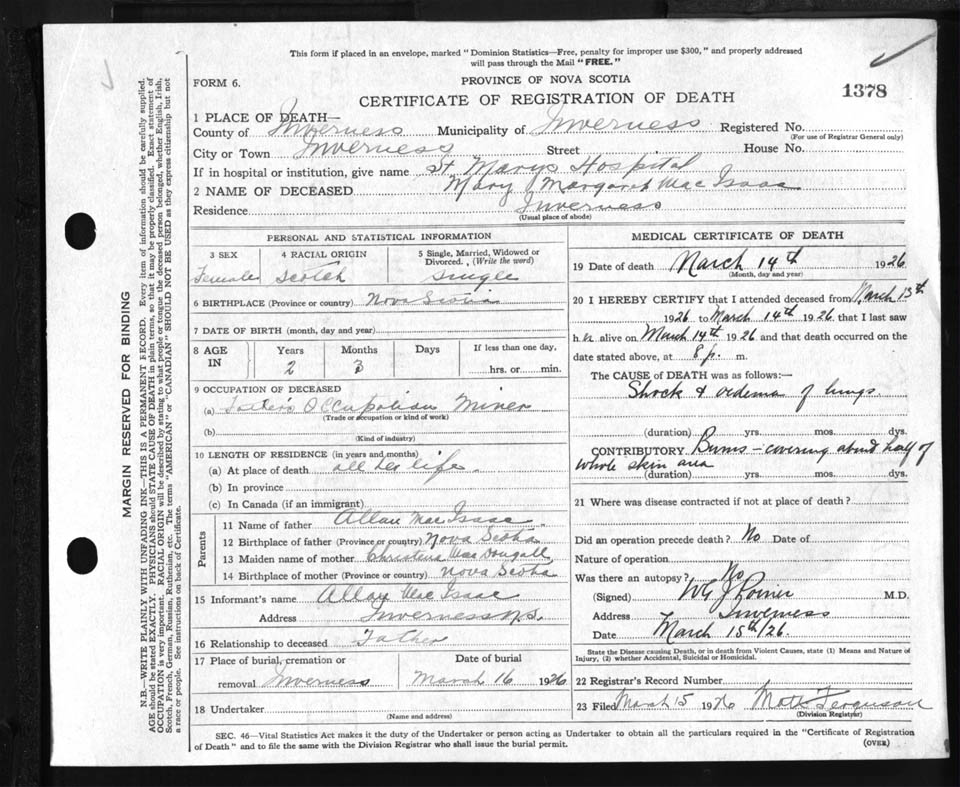 This form if placed in an envelope, marked "Dominion Statistics—Free, penalty for improper use $300," and properly addressed
will pass through the Mail "FREE."
FORM 6.
PROVINCE OF NOVA SCOTIA
1378
CERTIFICATE OF REGISTRATION OF DEATH
1 PLACE OF DEATH—
County of Inverness Municipality of Inverness Registered No.
(For use of Registrar General only)
City or Town Inverness Street House No.
If in hospital or institution, give name St. Marys Hospital
2 NAME OF DECEASED Mary Margaret Mac Isaac
Residence Inverness
(Usual place of abode)
PERSONAL AND STATISTICAL INFORMATION
3 SEX 4 RACIAL ORIGIN 5 Single, Married, Widowed or
Divorced. (Write the word)
Female Scotch Single
6 BIRTHPLACE (Province or country) Nova Scotia
7 DATE OF BIRTH (month, day and year)
8 AGE IN Years Months Days If less than one day.
2 3 hrs. or min.
9 OCCUPATION OF DECEASED
(a) Father's Occupation Miner
(Trade or occupation or kind of work)
(b)
(Kind of industry)
10 LENGTH OF RESIDENCE (in years and months)
(a) At place of death all her life
(b) In province
(c) In Canada (if an immigrant)
Parents
11 Name of father Allan Mac Isaac
12 Birthplace of father (Province or country) Nova Scotia
13 Maiden name of mother Christena Mac Dougall
14 Birthplace of mother (Province or country) Nova Scotia
15 Informant's name Allan Mac Isaac
Address Inverness N.S.
16 Relationship to deceased Father
17 Place of burial, cremation or Date of burial
removal Inverness March 16 1926
18 Undertaker
(Name and address)
MEDICAL CERTIFICATE OF DEATH
19 Date of death March 14th 1926
(Month, day and year)
20 I HEREBY CERTIFY that I attended deceased from March 13th
1926 to March 14th 1926 that I last saw
her alive on March 14th 1926 and that death occurred on the
date stated above, at 8 p. m.
The CAUSE OF DEATH was as follows:—
Shock & oedema of lungs
(duration) yrs. mos. dys.
CONTRIBUTORY Burns — covering about half of
whole skin area
(duration) yrs. mos. dys.
21 Where was disease contracted if not at place of death?
Did an operation precede death? No Date of
Nature of operation
Was there an autopsy? No
(Signed) M.D.
Address Inverness
Date March 15th/26.
State the Disease causing Death, or in death from Violent Causes, state (1) Means and Nature of
Injury, (2) whether Accidental, Suicidal or Homicidal.
22 Registrar's Record Number
23 Filed March 15 1926 Ferguson
(Division Registrar)
SEC. 46—Vital Statistics Act makes it the duty of the Undertaker or person acting as Undertaker to obtain all the particulars required in the "Certificate of Registration
of Death" and to file the same with the Division Registrar who shall issue the burial permit.
(OVER)
MARGIN RESERVED FOR BINDING
N.B.—WRITE PLAINLY WITH UNFADING INK—THIS IS A PERMANENT RECORD. Every item of information should be carefully supplied.
AGE should be stated EXACTLY. PHYSICIANS should STATE CAUSE OF DEATH in plain terms, so that it may be properly classified. Exact statement of
OCCUPATION is very important. RACIAL ORIGIN will be described by stating to what people or tongue the deceased person belonged, whether English, Irish,
Scotch, French, German, Russian, Ruthenian, etc. The terms "AMERICAN" or "CANADIAN" SHOULD NOT BE USED as they express citizenship but not
a race or people. See instructions on back of Certificate.